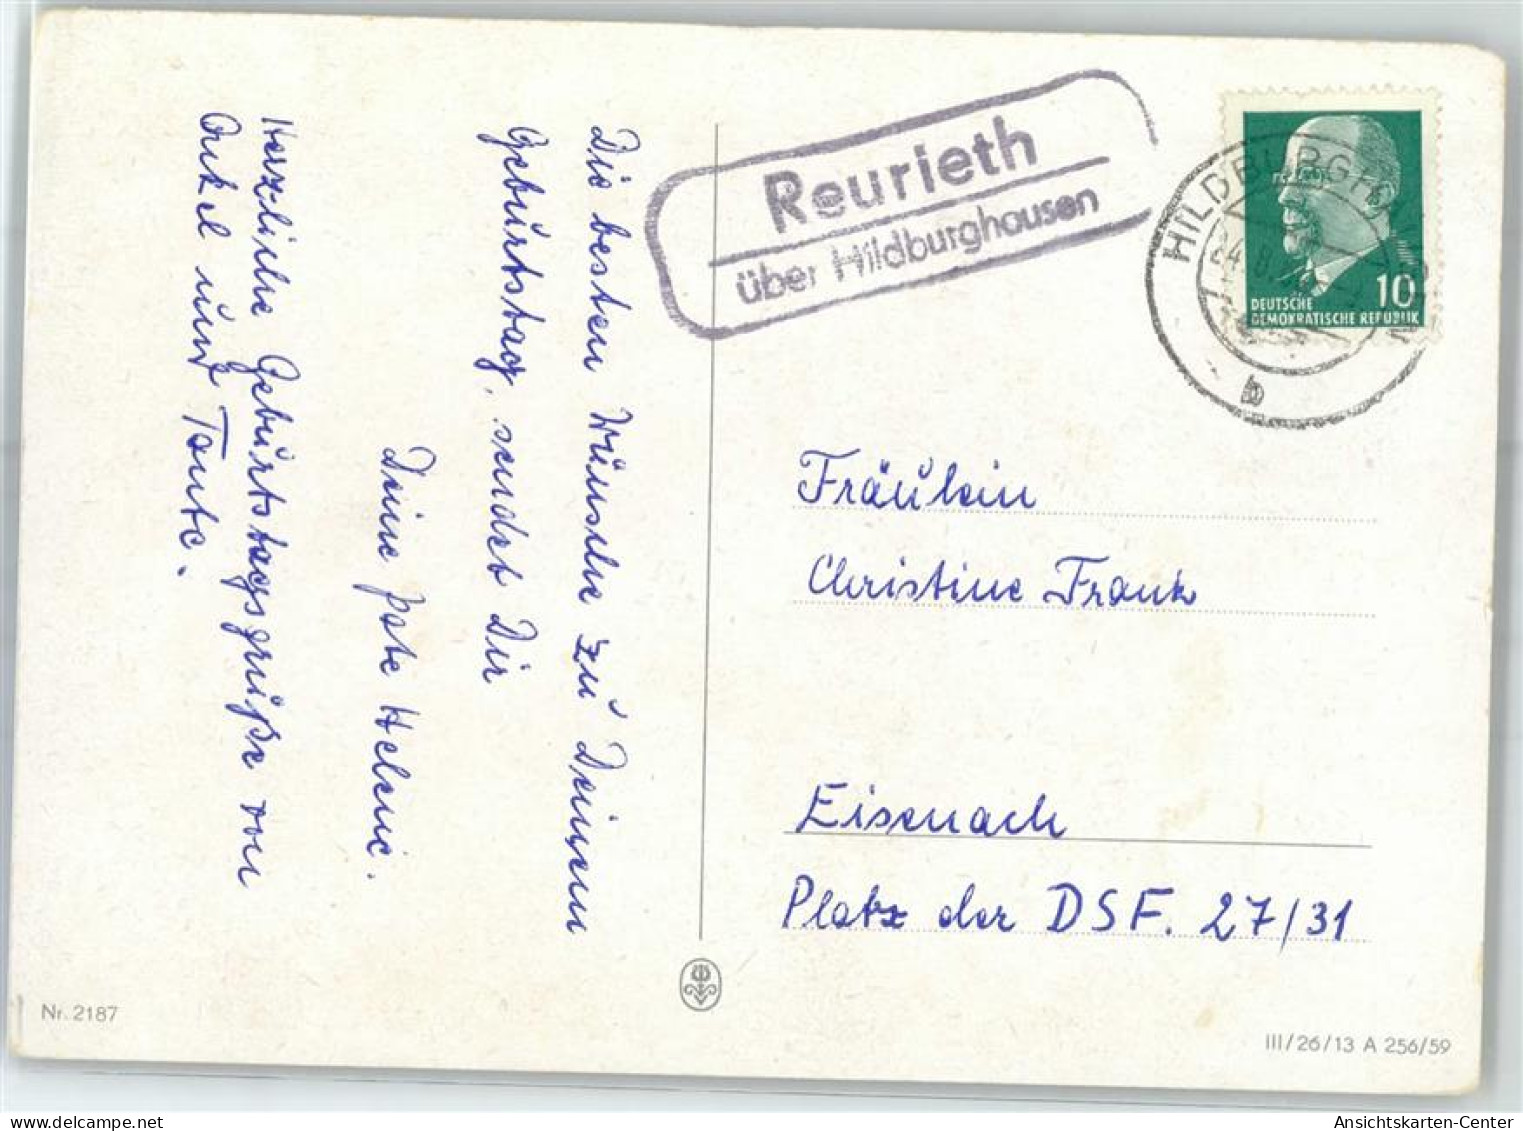 Die besten Wünsche zu Deinem
Geburtstag, sendet Dir
Deine Pate Helene.
Herzliche Geburtstagsgrüße von
Onkel und Tante.
Reurieth
über Hildburghausen
HILDBURGHA
24.8.
b
10
DEUTSCHE
DEMOKRATISCHE REPUBLIK
Fräulein
Christine Frank
Eisenach
Platz der DSF. 27/31
Nr. 2187
III/26/13 A 256/59
Ansichtskarten-Center